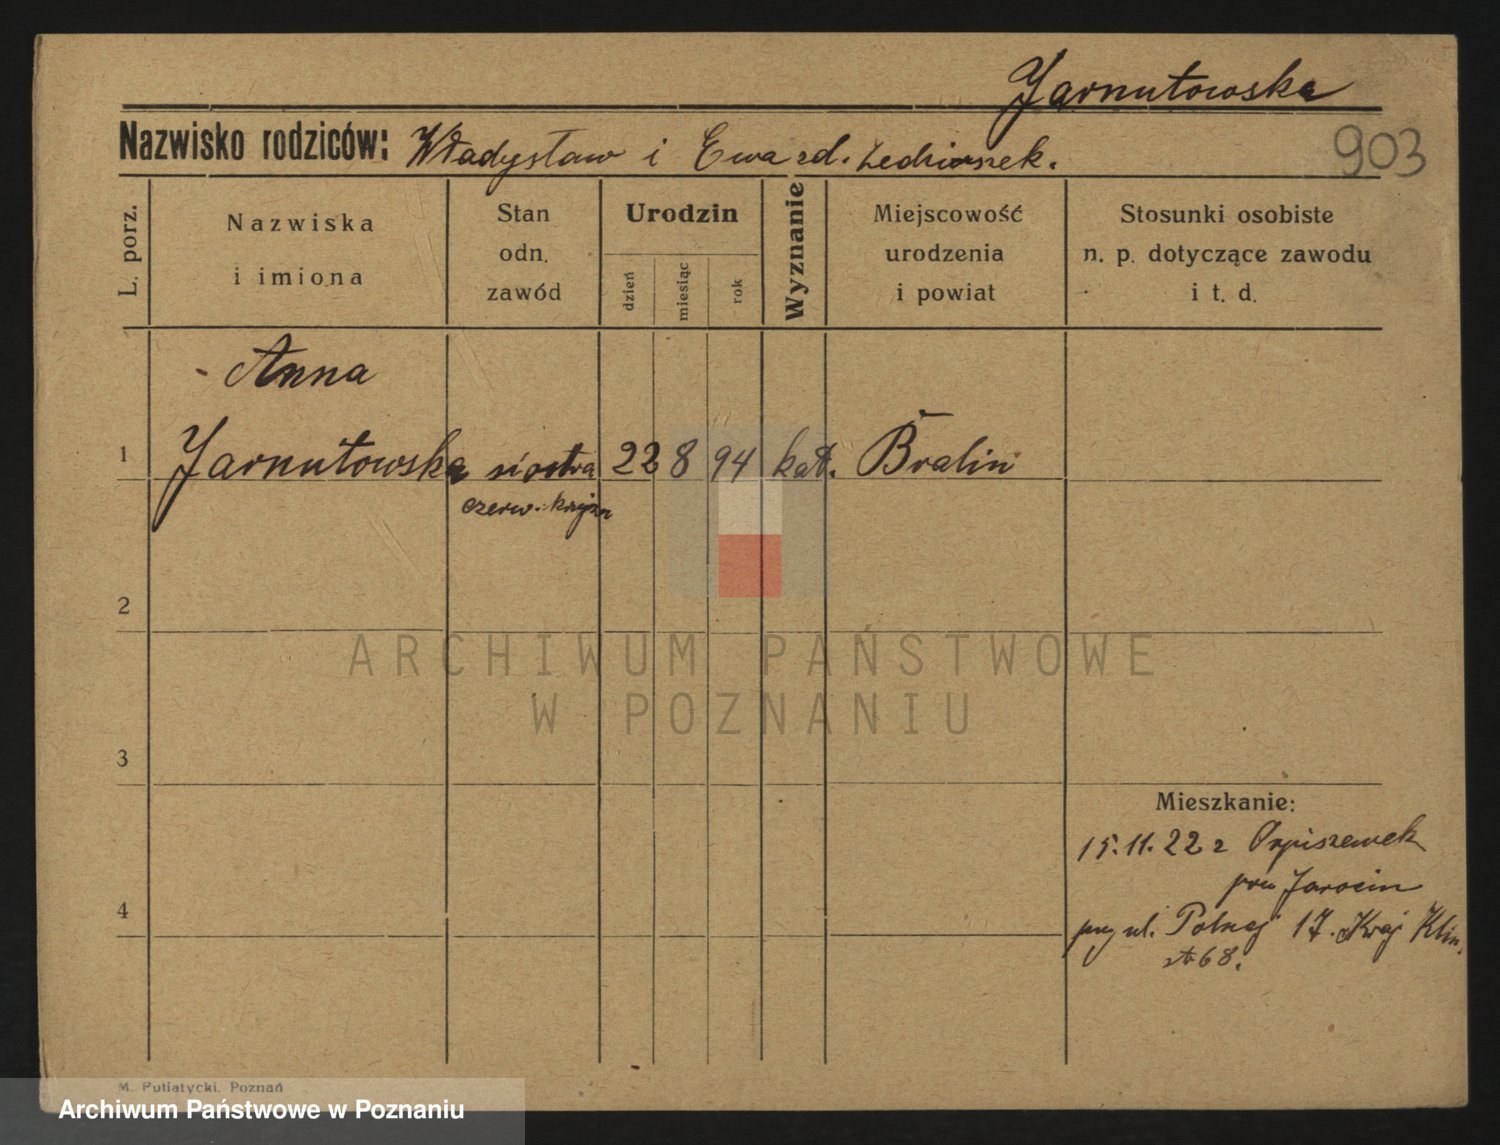 Jarnutowska
Nazwisko rodziców: Władysław i Ewa zd.
903
L. porz.
Nazwiska
i imiona
Stan
odn.
zawód
Urodzin
dzień
miesiąc
rok
Wyznanie
Miejscowość
urodzenia
i powiat
Stosunki osobiste
n. p. dotyczące zawodu
i t. d.
Anna
1 Jarnutowska siostra 22 8 94 kat. Bralin
czerw.
2
ARCHIWUM PAŃSTWOWE
W POZNANIU
3
Mieszkanie:
15.11.22 z Orpiszewek
pow Jarocin
4
przy ul. Polnej 17. Kraj Klin.
68.
M. Putiatycki, Poznań
Archiwum Państwowe w Poznaniu